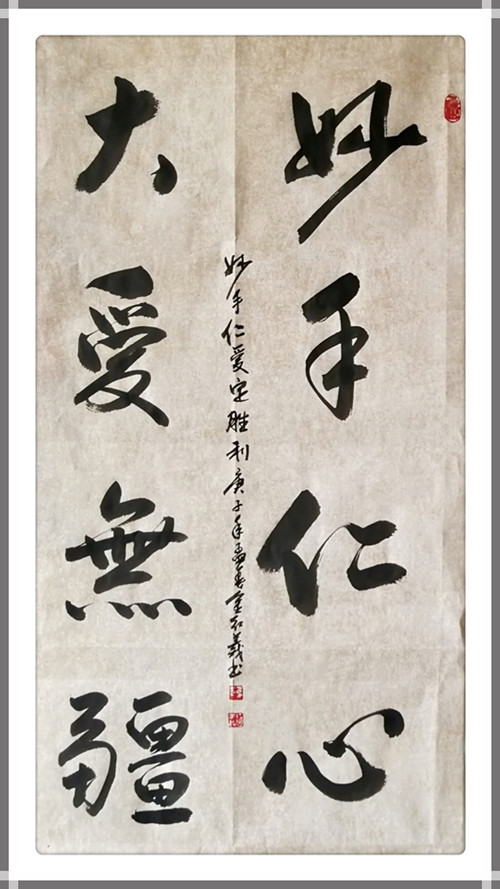 妙手仁心
大愛無疆
妙手仁爱定胜利庚子年孟春金红義书